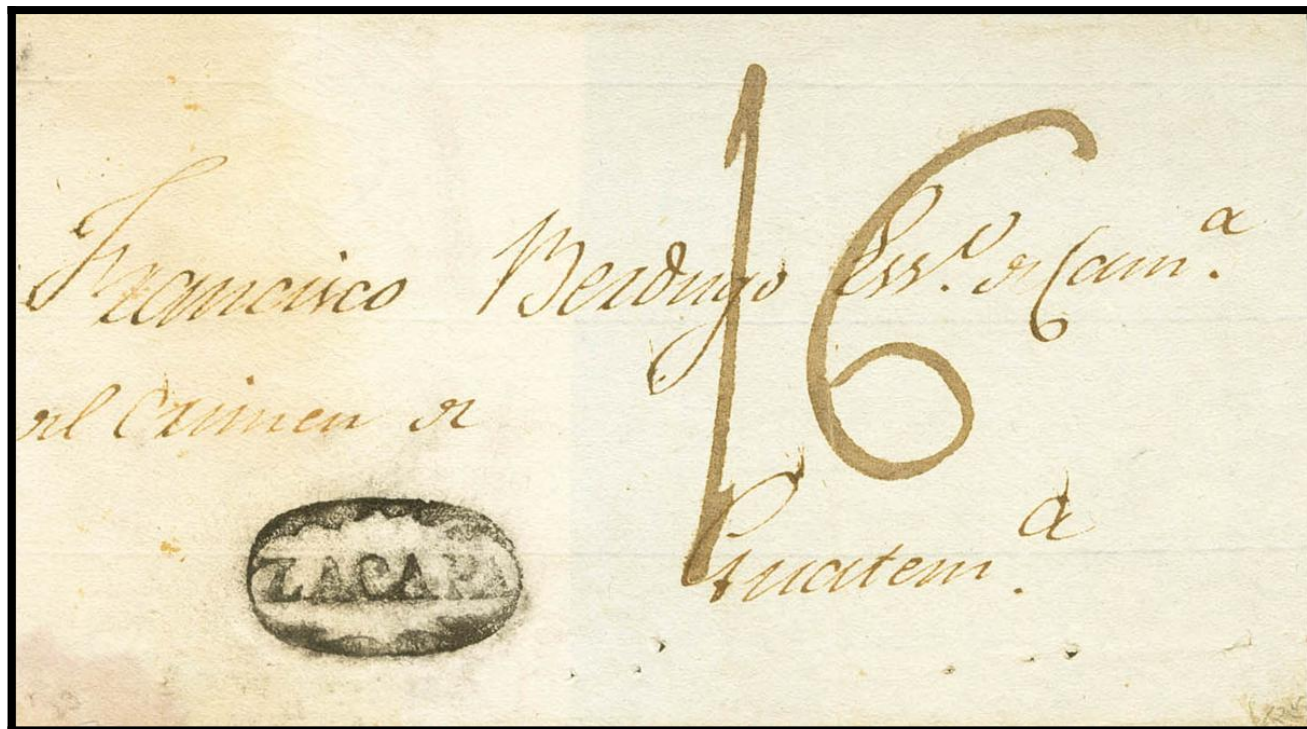 16
Francisco Berdugo Ess.º de Cam.ª
del Crimen de
ZACAPA
Guatem.ª